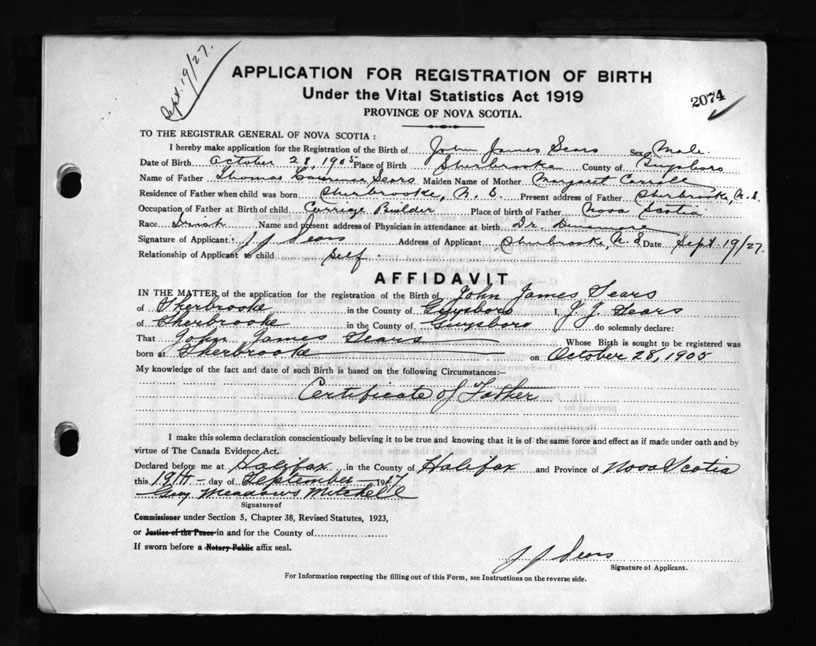 Sept. 19/27.
APPLICATION FOR REGISTRATION OF BIRTH
Under the Vital Statistics Act 1919
2074
PROVINCE OF NOVA SCOTIA.
TO THE REGISTRAR GENERAL OF NOVA SCOTIA :
I hereby make application for the Registration of the Birth of John James Sears Sex Male
Date of Birth October 28, 1905 Place of Birth Sherbrooke County of Guysboro
Name of Father Thomas Sears Maiden Name of Mother Margaret
Residence of Father when child was born Sherbrooke, N. S. Present address of Father Sherbrooke, N. S.
Occupation of Father at Birth of child Carriage Builder Place of birth of Father Nova Scotia
Race Irish Name and present address of Physician in attendance at birth Dr.
Signature of Applicant: J J Sears Address of Applicant Sherbrooke, N. S. Date Sept. 19/27.
Relationship of Applicant to child Self.
AFFIDAVIT
IN THE MATTER of the application for the registration of the Birth of John James Sears
of Sherbrooke in the County of Guysboro I, J. J. Sears
of Sherbrooke in the County of Guysboro do solemnly declare:
That John James Sears Whose Birth is sought to be registered was
born at Sherbrooke on October 28, 1905
My knowledge of the fact and date of such Birth is based on the following Circumstances:—
Certificate of Father
I make this solemn declaration conscientiously believing it to be true and knowing that it is of the same force and effect as if made under oath and by
virtue of The Canada Evidence Act.
Declared before me at Halifax in the County of Halifax and Province of Nova Scotia
this 19th day of September 1927
Guy Meadows Mitchell
Signature of
Commissioner under Section 5, Chapter 38, Revised Statutes, 1923,
or Justice of the Peace in and for the County of
If sworn before a Notary Public affix seal.
J J Sears
Signature of Applicant.
For Information respecting the filling out of this Form, see Instructions on the reverse side.